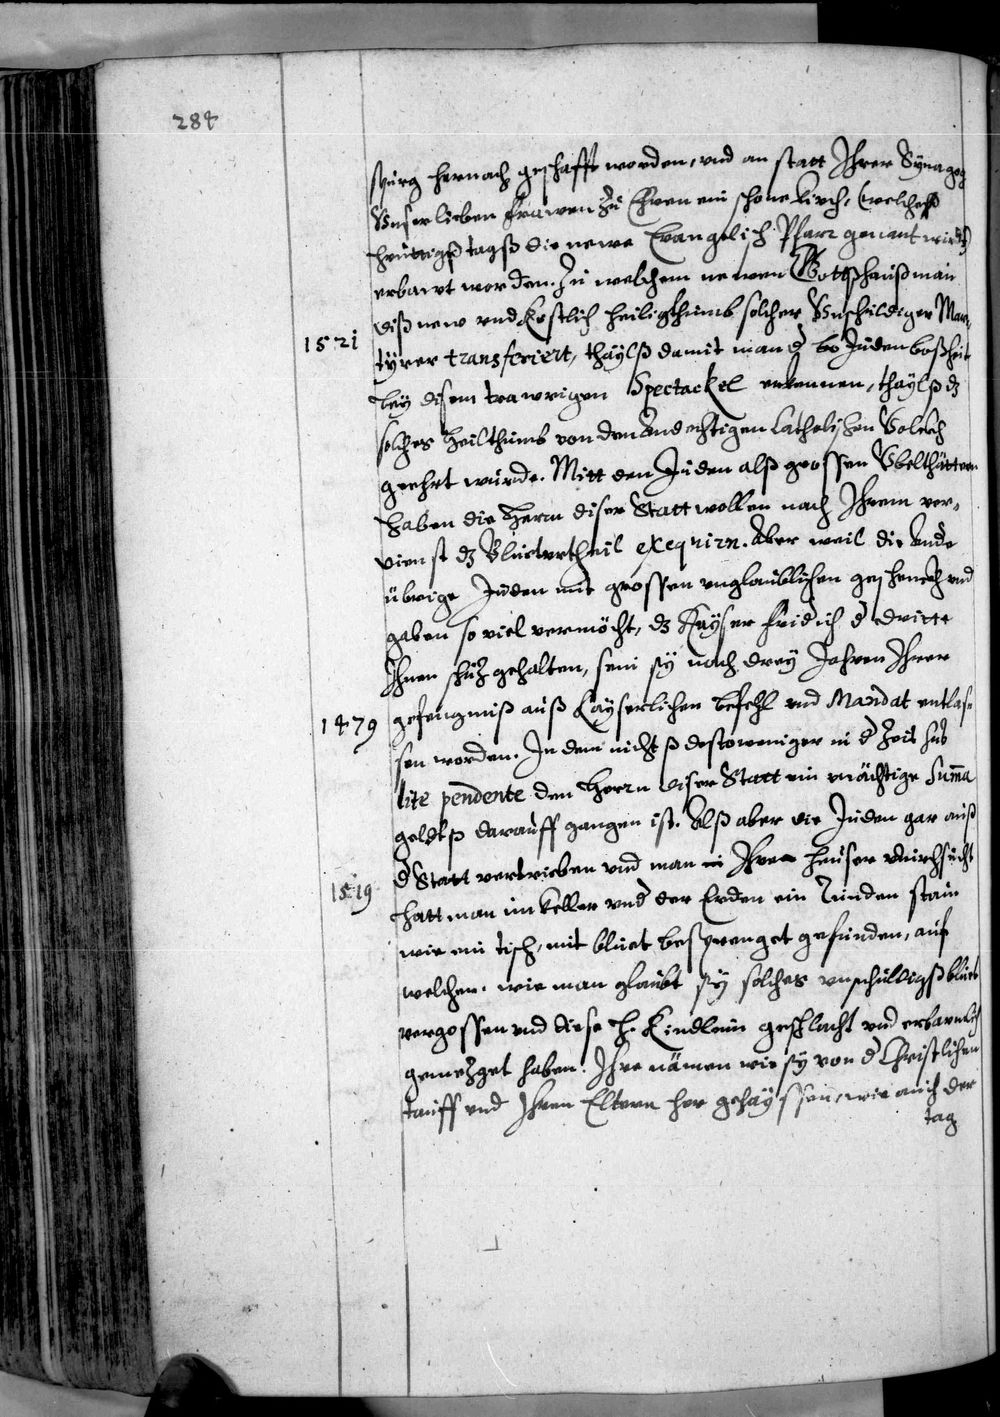 284
spurg hernach geschafft worden, vnd an statt Ihrer Synagog
Vnser lieben Frawen zu Ehren ein schöne Kirch, (welches
heuttigß tagß die newe Evangelisch Pfarr genant wirdt)
erbawt worden. Zu welchem newen Gottßhauß man
diß new vnd Köstlich heiligthumb solcher Vnschuldiger Mar-
1521
tÿrer transferiert, thaÿlß damit man d Juden boßheit
beÿ disem trawrigen Spectackel erkennen, thaÿlß dz
solches heilthumb von den Andechtigen Catholischen Volckh
geehrt wurde. Mitt den Juden alß grossen Vbelthättern
haben die Herrn diser Statt wollen nach Ihrem ver-
dienst dz Bluetvrtheil exequirn. Aber weil die Ande
übrige Juden mit grossen vnglaublichen geschenckh vnd
gaben so viel vermöcht, dz Kaÿser Fridich d dritte
Ihnen schuz gehalten, sein sÿ nach dreÿ Jahren Ihrer
1479
gefengniß auß Kaÿserlichen befehl vnd Mandat entlas-
sen worden. In dem nichtß destoweniger in d Zeit sub
lite pendente den Herrn diser Statt ein mächtige Summa
geldtß darauff gangen ist. Alß aber die Juden gar auß
d Statt vertrieben vnd man in Ihren heuser durchsucht
1519
hatt man im Keller vnd der Erden ein runden stain
wie ein tisch, mit bluet besprenget gefunden, auf
welchen, wie man glaubt sÿ solches vnschuldigß bluet
vergossen vnd diese h. Kindlein geschlacht vnd erbarmlich
gemezget haben. Ihre nämen wie sÿ von d Christlichen
tauff vnd Ihren Eltern her gehaÿssen, wie auch der
tag